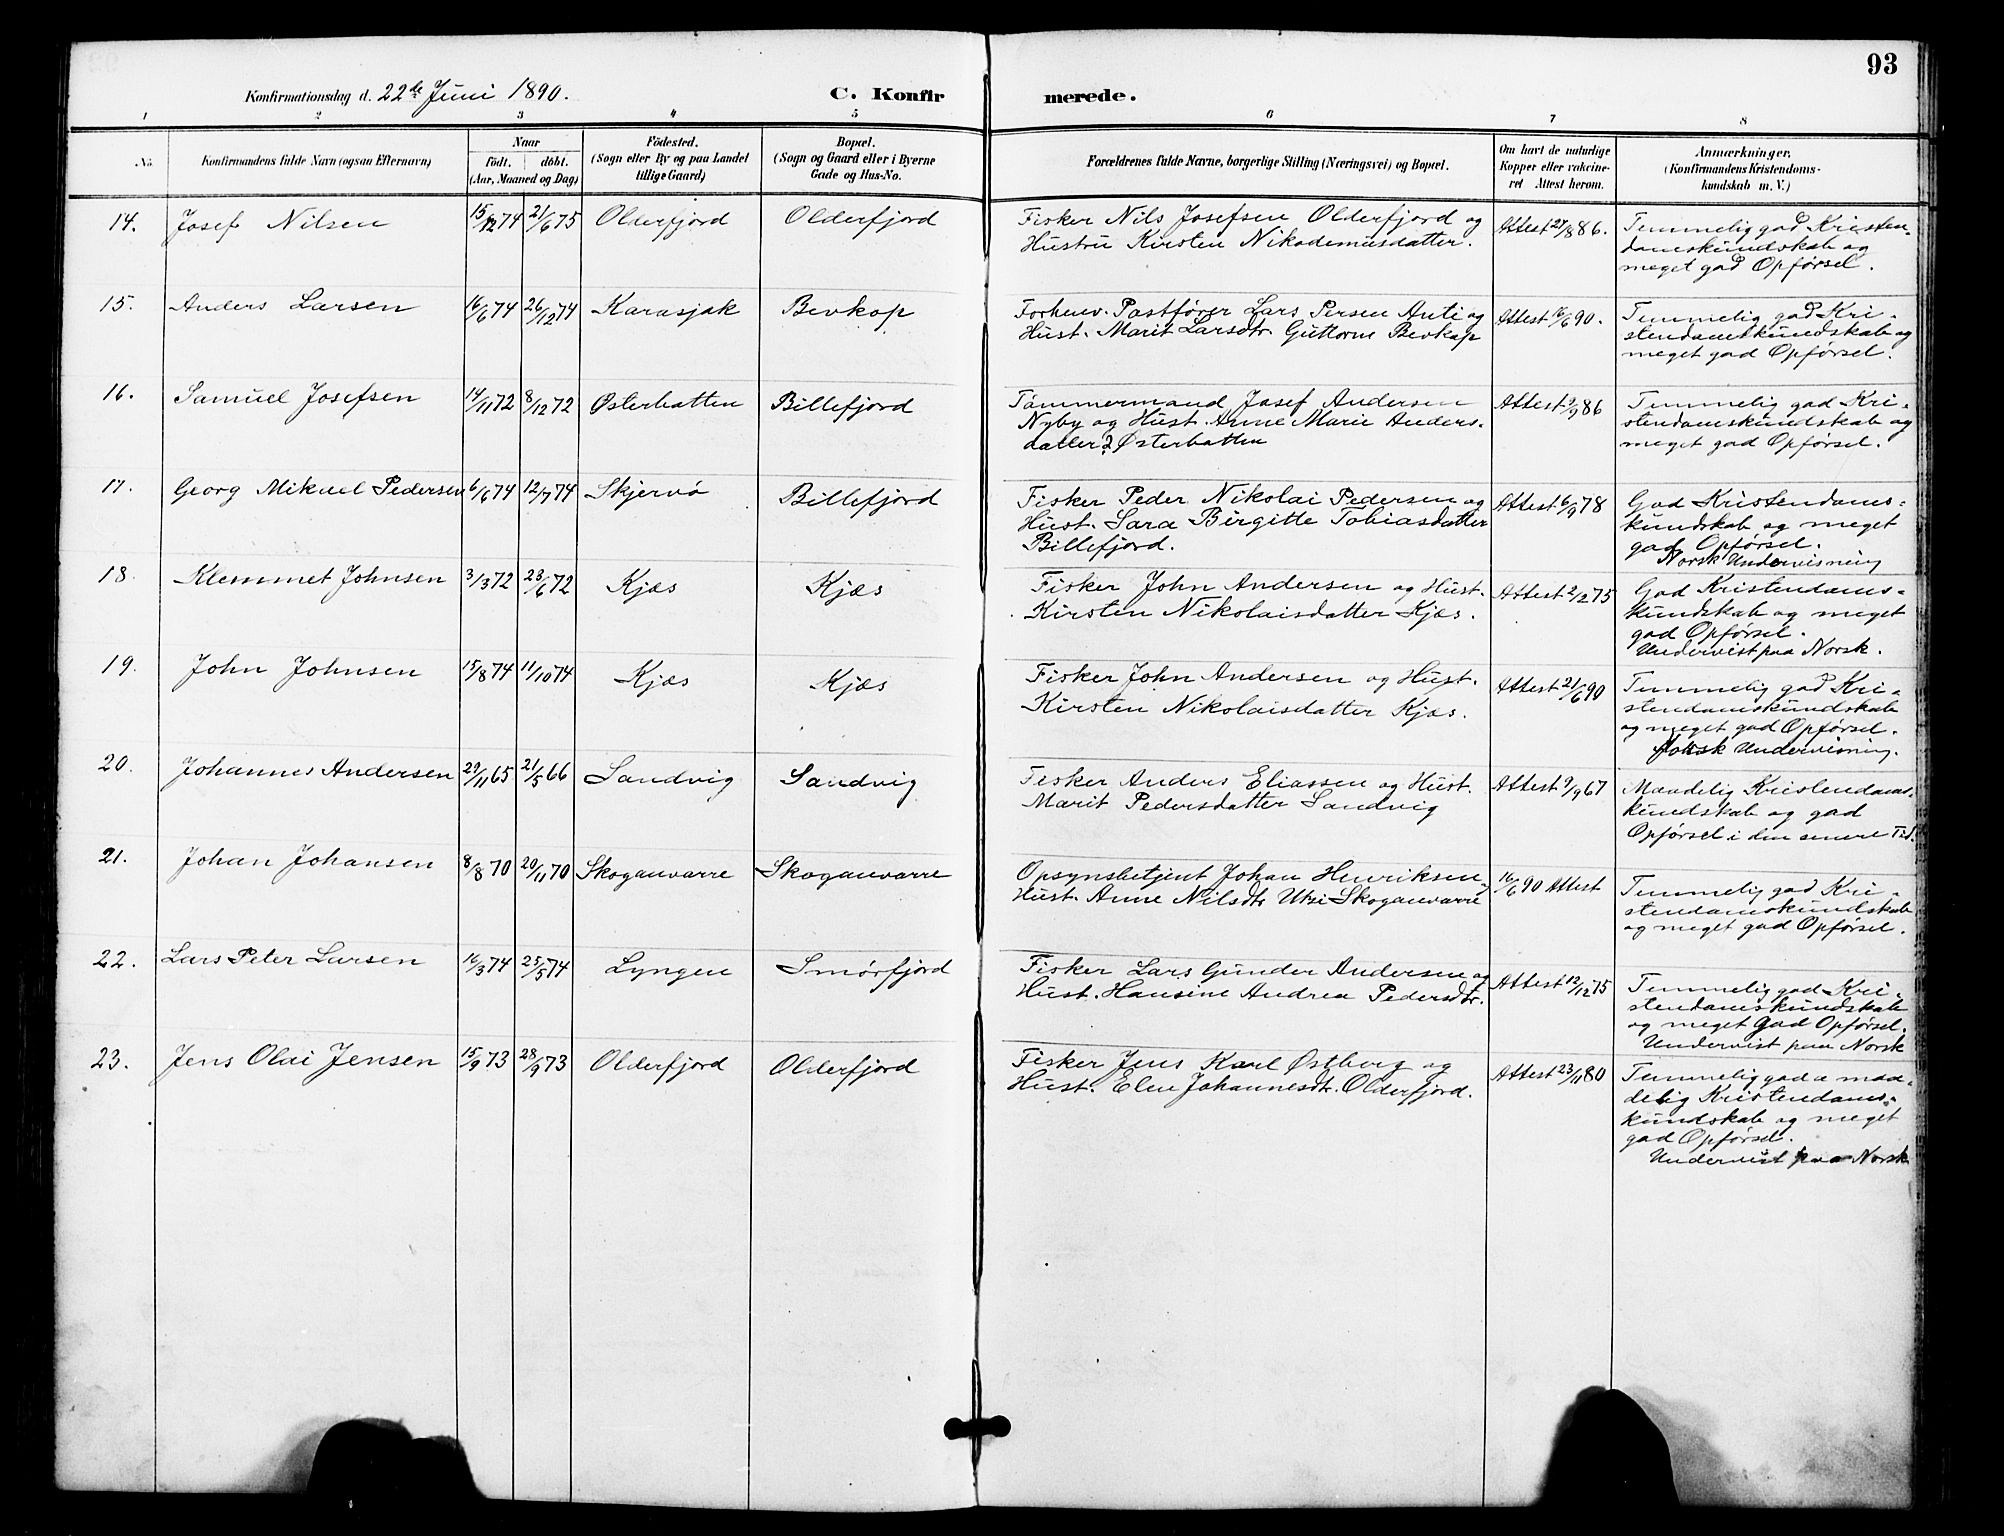 93
Konfirmationsdag d. 22de Juni 1890. C. Konfirmerede.
1 2 3 4 5 6 7 8
No. Konfirmandens fulde Navn (ogsaa Efternavn) Naar födt. döbt. (Aar, Maaned og Dag) Födested. (Sogn eller By og paa Landet tillige Gaard) Bopæl. (Sogn og Gaard eller i Byerne Gade og Hus-No. Forældrenes fulde Navne, borgerlige Stilling (Næringsvei) og Bopæl. Om havt de naturlige Kopper eller vakcineret Attest herom. Anmærkninger. (Konfirmandens Kristendomskundskab m. V.)
14. Josef Nilsen 15/12 74 21/6 75 Olderfjord Olderfjord Fisker Nils Josefsen Olderfjord og Attest 27/8 86. Temmelig god Kristen-
Hustru Kirsten Nikodemusdatter. domskundskab og
meget god Opførsel.
15. Anders Larsen 16/6 74 26/12 74 Karasjok Bevkop Forhenv. Postfører Lars Persen Anti og Attest 16/6 90. Temmelig god Kri-
Hust. Marit Larsdtr. Guttorm Bevkop stendomskundskab og
meget god Opførsel.
16. Samuel Josefsen 14/11 72 8/12 72 Østerbotten Billefjord Tömmermand Josef Andersen Attest 9/9 86 Temmelig god Kri-
Nyby og Hust. Anne Marie Anders- stendomskundskab og
datter? Østerbotten meget god Opførsel.
17. Georg Mikael Pedersen 6/6 74 12/7 74 Skjervö Billefjord Fisker Peder Nikolai Pedersen og Attest 16/9 78 God Kristendoms-
Hust. Sara Birgitte Tobiasdatter kundskab og meget
Billefjord. god Opførsel.
Norsk Undervisning
18. Klemmet Johnsen 3/3 72 23/6 72 Kjæs Kjæs Fisker John Andersen og Hust. Attest 2/2 75 God Kristendoms-
Kirsten Nikolaisdatter Kjæs. kundskab og meget
god Opførsel.
Undervist paa Norsk.
19. John Johnsen 15/8 74 11/10 74 Kjæs Kjæs Fisker John Andersen og Hust. Attest 21/6 90 Temmelig god Kri-
Kirsten Nikolaisdatter Kjæs. stendomskundskab
og meget god Opførsel.
Norsk Undervisning.
20. Johannes Andersen 29/11 65 21/5 66 Sandvig Sandvig Fisker Anders Eliassen og Hust. Attest 9/9 67 Maadelig Kristendoms-
Marit Pedersdatter Sandvig kundskab og god
Opførsel i den senere Tid.
21. Johan Johansen 8/8 70 20/11 70 Skoganvarre Skoganvarre Opsynsbetjent Johan Henriksen og 16/6 90 Attest Temmelig god Kri-
Hust. Anne Nilsdtr Utsi Skoganvarre stendomskundskab
og meget god Opførsel.
22. Lars Peter Larsen 16/3 74 25/5 74 Lyngen Smörfjord Fisker Lars Gunder Andersen og Attest 12/12 75 Temmelig god Kri-
Hust. Hansine Andrea Pedersdtr. stendomskundskab
og meget god Opførsel.
Undervist paa Norsk
23. Jens Olai Jensen 15/9 73 28/9 73 Olderfjord Olderfjord Fisker Jens Karl Østberg og Attest 23/11 80 Temmelig god a maa-
Hust. Elen Johannesdtr. Olderfjord. delig Kristendoms-
kundskab og meget
god Opførsel.
Undervist paa Norsk